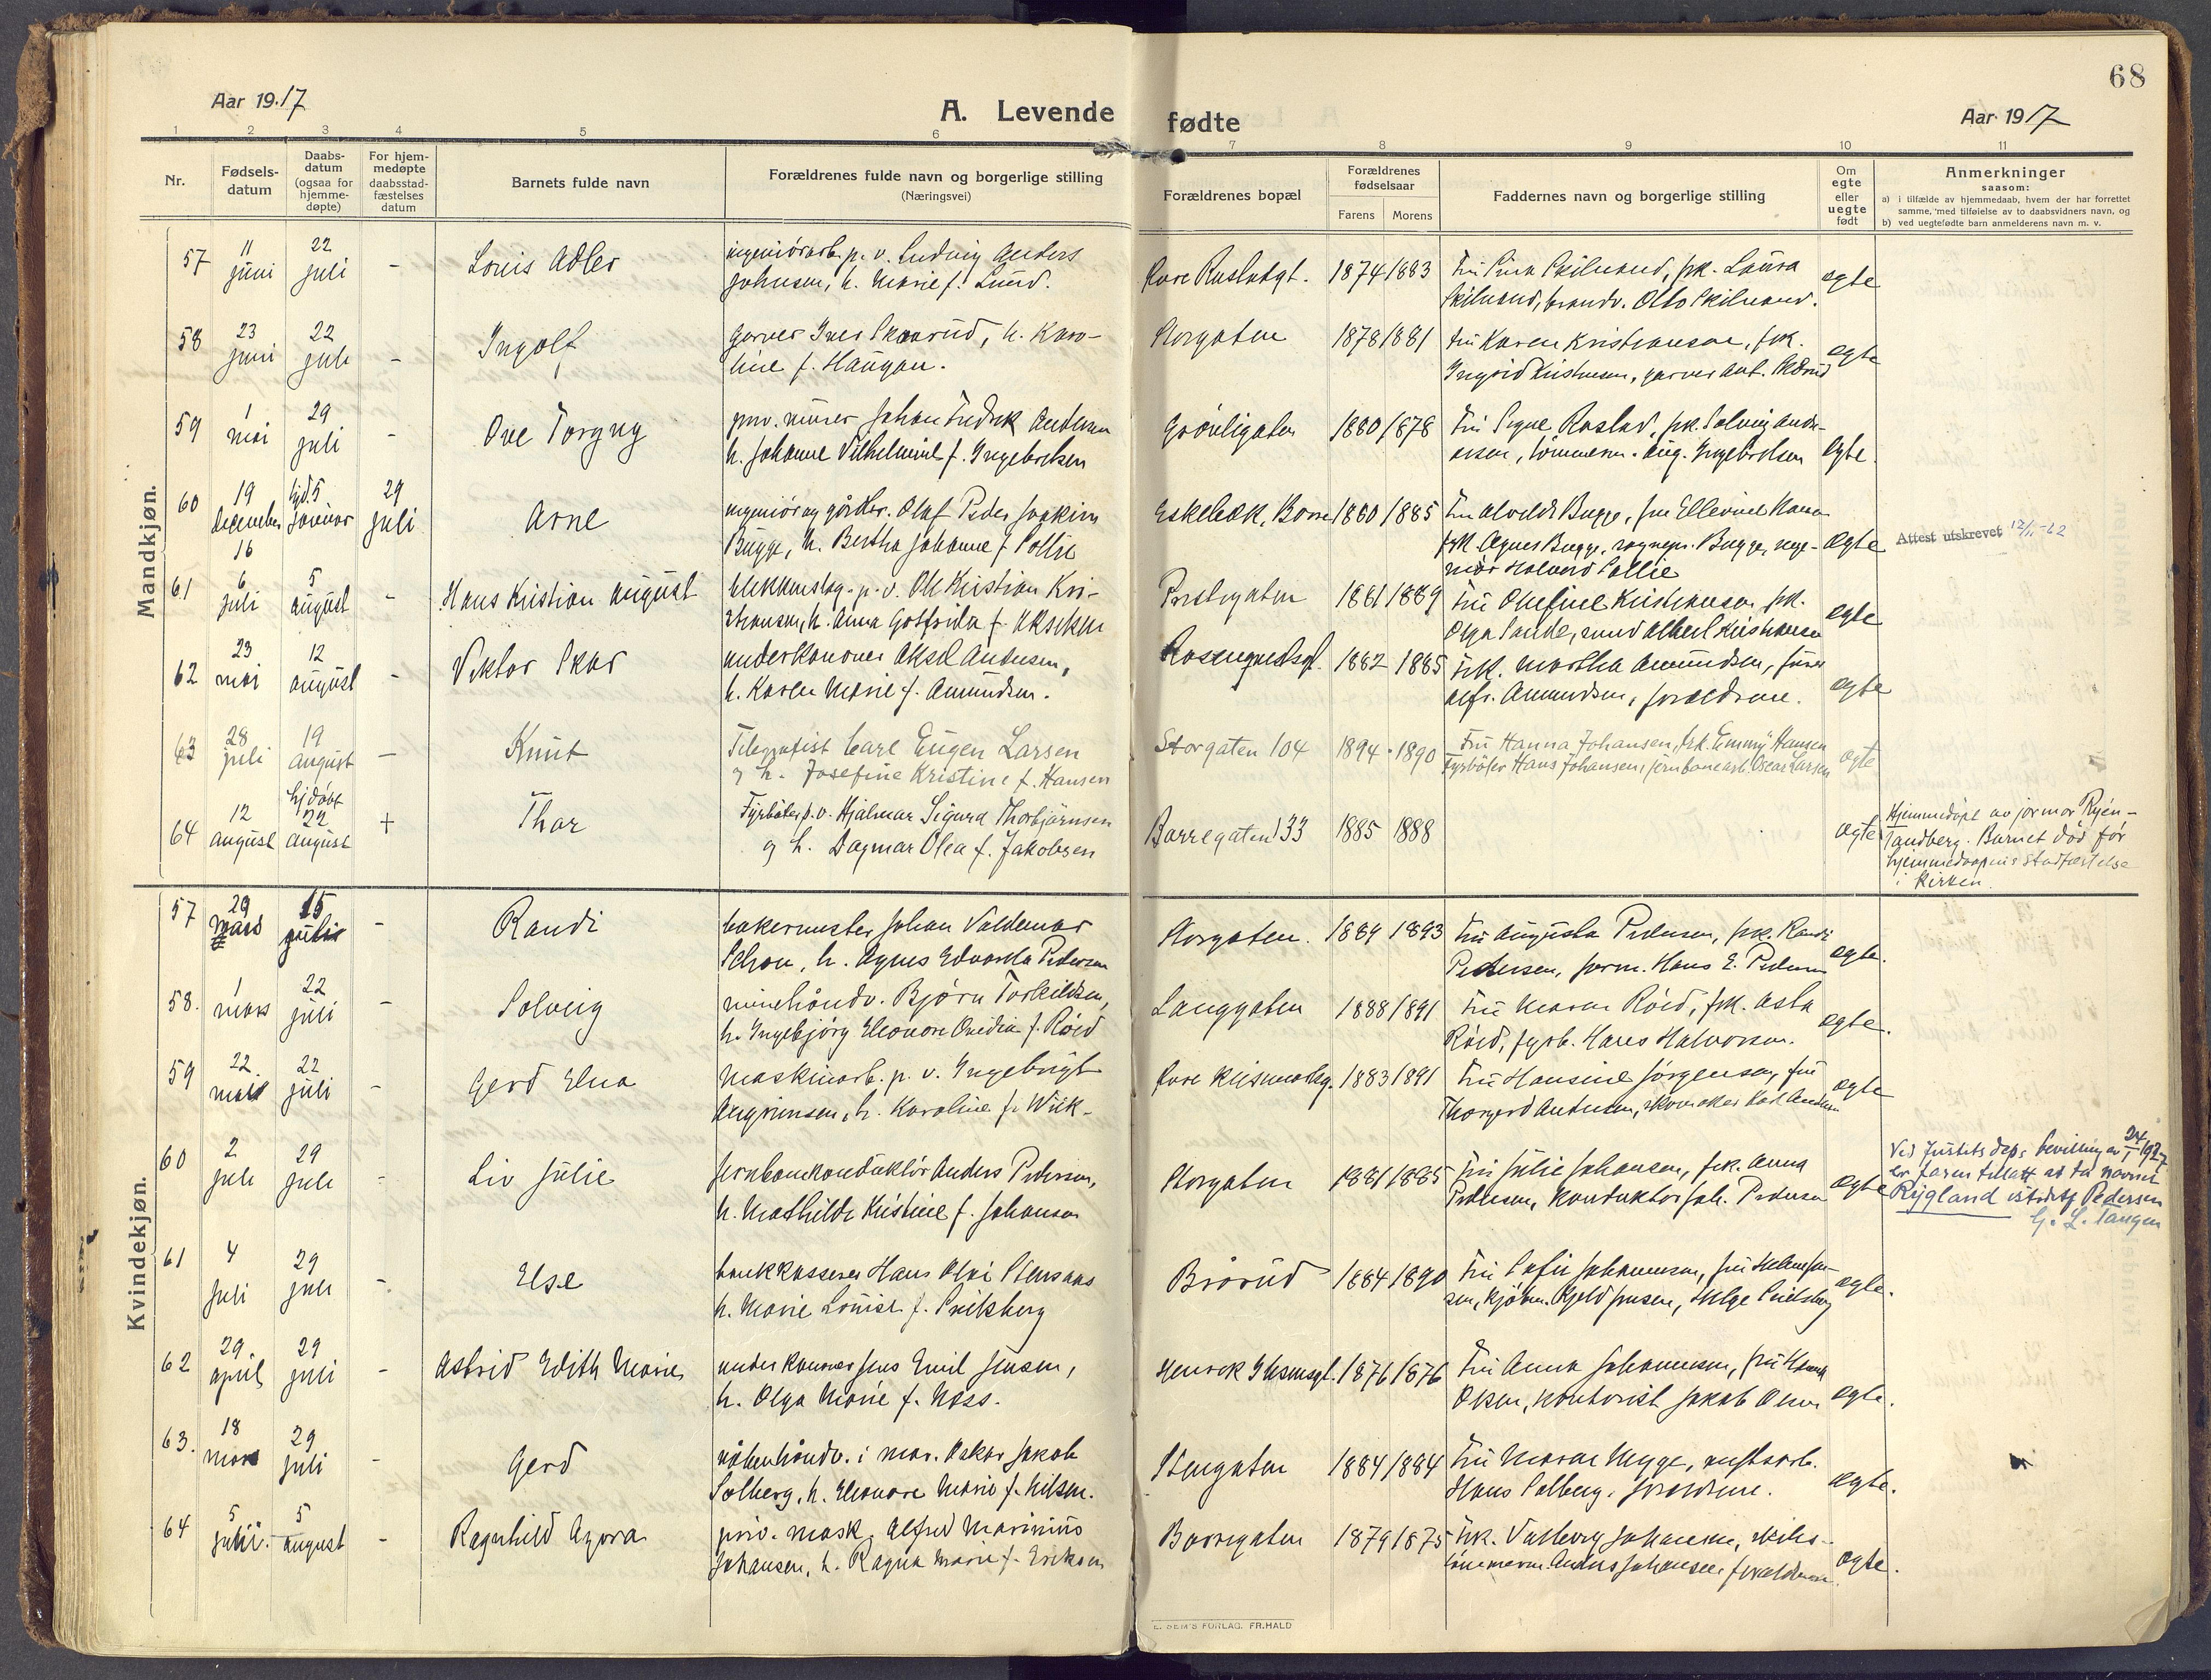 68
Aar 1917
A. Levende fødte
Aar 1917
1 2 3 4 5 6 7 8 9 10 11
Nr.
Fødsels-
datum
Daabs-
datum
(ogsaa for
hjemme-
døpte)
For hjem-
medøpte
daabsstad-
fæstelses
datum
Barnets fulde navn
Forældrenes fulde navn og borgerlige stilling
(Næringsvei)
Forældrenes bopæl
Forældrenes
fødselsaar
Farens Morens
Faddernes navn og borgerlige stilling
Om
egte
eller
uegte
født
Anmerkninger
saasom:
a) i tilfælde av hjemmedaab, hvem der har forrettet
samme, med tilføielse av to daabsvidners navn, og
b) ved uegtefødte barn anmelderens navn m. v.
Mandkjøn.
57 11 juni 22 juli - Louis Adler
p. v. Ludvig Anders
Johnsen, h. Marie f. Lund.
1874 1883
Laura
Otto
egte
58 23 juni 22 juli - Ingolf
garver Iver Skaarud, h. Karo-
line f. Haugan.
Storgaten 1878 1881
fru Karen Kristiansen, frk.
Ingrid garver Ant.
egte
59 1 mai 29 juli - Ove Torgny
murer Johan Fredrik Andersen
h. Johanne Vilhelmine f. Ingebretsen
Grønligaten 1880 1878
Fru Signe Rastad, frk. Solveig Andr-
Aug. Ingebretsen
egte.
60 19 december 16 hjd. 5 januar 29 juli Arne
Olaf Peder Joakim
Bugge, h. Bertha Johanne f. Sollie
Eskebæk, Borre 1880 1885
Fru Alvilde Bugge, fru
frk. Agnes Bugge, Bugge,
Halvard Sollie
egte
Attest utskrevet 12/11-62
61 6 juli 5 august - Hans Kristian August
p. v. Ole Kristian Kri-
stiansen, h. Anna Gotfrida f. Eriksen
Prestegaten 1881 1889
Fru Olefine Kristiansen frk.
Olga Sande, Albert Kristiansen
egte
62 23 mai 12 august - Viktor Skar
underkanoner Aksel Andersen,
h. Karen Marie f. Amundsen.
Rosenqvistsgt. 1882 1885
Frk. Martha Amundsen,
Alfr. Amundsen, forældrene.
egte
63 28 juli 19 august - Knut
Telegrafist Carl Eugen Larsen
og h. Josefine Kristine f. Hansen
Storgaten 104 1894 1890
Fru Hanna Johansen, frk. Emmy Hansen
Fyrbøter Hans Johansen, jernbanearb. Oscar Larsen
egte
64 12 august hjdøbt 22 august + Thor
Fyrbøter p. v. Hjalmar Sigurd Thorbjørnsen
og h. Dagmar Olea f. Jakobsen
Borregaten 133 1885 1888
egte
Hjemmedøpt av jormor Ryen-
Tandberg. Barnet død før
hjemmedaapens stadfæstelse
i kirken.
Kvindekjøn.
57 29 mars 15 juli - Randi
bakermester Johan Valdemar
Schou, h. Agnes Edvarda Pedersen
Storgaten. 1889 1893
Fru Augusta Pedersen, frk. Randi
Pedersen, form. Hans E. Pedersen
egte.
58. 1 mars 22 juli - Solveig
minehåndv. Bjørn Torkildsen,
h. Ingebjørg Eleonore Ovidia f. Røed
Langgaten 1888 1891
Fru Maren Røed, frk. Asta
Røed, fyrb. Hans Halvorsen.
egte.
59 22. 22 juli - Gerd Elna
Maskinarb. p. v. Ingebrigt
h. Karoline f. Wiik.
1883 1891
Fru Hansine Jørgensen, fru
Thorgerd Andersen, skomaker
egte
60 2 juli 29 juli - Liv Julie
jernbanekonduktør Anders Pedersen,
h. Mathilde Kristine f. Johansen
Storgaten 1881 1885
Fru Julie Johansen, frk. Anna
Pedersen, konduktør Joh. Pedersen
egte
Ved Justitsdeps bevilling av 24/1 1927
er faren tillatt at ta navnet
Rygland istedetf. Pedersen
G. L. Tangen
61 4 juli 29 juli - Else
bankkasserer Hans Olai Stensaas
h. Marie Louise f.
Brårud 1884 1890
Fru Sofie Johannesen, fru
sen, kjøbm. Kjeld Jensen, Helge
egte.
62 29. april 29 juli - Astrid Edith Marie
underkanoner Jens Emil Jensen,
h. Olga Marie f. Næss.
Henrik Ibsensgt. 1876 1876
Fru Anna Johannesen, fru
Olsen, kontorist Jakob Olsen
egte.
63. 18 mars 29 juli - Gerd
håndv. i mar. Oskar Jakob
Solberg, h. Eleonore Marie f. Nilsen.
Stengaten 1884 1884
Fru Maren Hegge,
Hans Solberg, forældrene.
egte.
64 5 juli. 5 august - Ragnhild Agora
priv. mask. Alfred Marinius
Johansen, h. Ragna Marie f. Eriksen
Borregaten 1879 1875
Frk. Valborg Johansen, skibs-
tømmerm. Anders Johansen, forældrene.
egte.
E. SEM'S FORLAG. FR.HALD